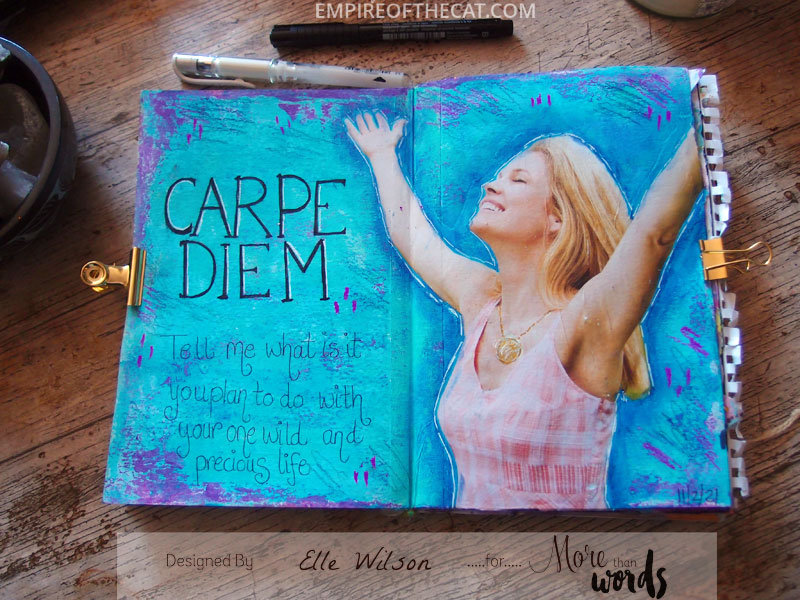 EMPIREOFTHECAT.COM
CARPE
DIEM
Tell me what is it
you plan to do with
your one wild and
precious life
11/2/21
Designed By Elle Wilson .....for..... More than words